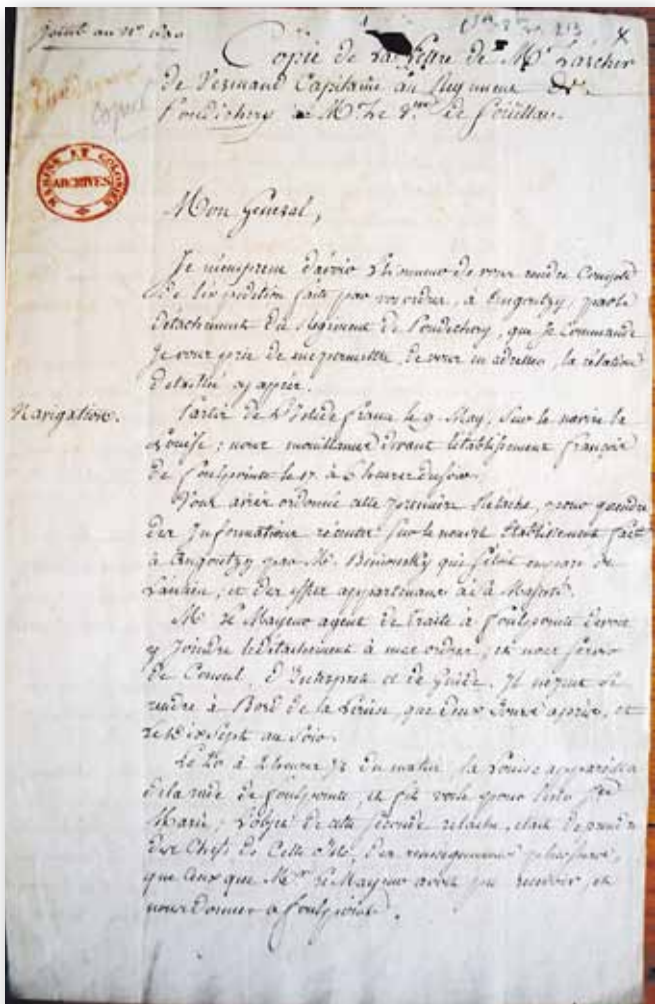 Joint au N.° 
Copie de la Lettre de M.r Larcher
de Vermand Capitaine au Regiment de
Pondichery a M.r Le V.te de Souillac.
Copié
MARINE ET COLONIES
ARCHIVES
213
X
Mon General,
Je m'empresse d'avoir L'honneur de vous rendre Compte
de L'expedition faite par vos ordres, a Angontzy, par le
détachement du Regiment de Pondichery, que Je Commande
Je vous prie de me permettre de vous en adresser, la rélation
détaillée cy après.
Navigation.
Partis de L'Isle de france le 9 May, Sur le navire la
Louise; nous mouillames devant l'établissement françois
de foulpointe le 17 à 6 heures du soir.
Vous aviés ordonné cette premiere Relache, pour prendre
des Informations récentes Sur le nouvel Etablissement fait
à Angontzy par M.r Beniowsky qui s'étoit emparé de
et des effets appartenans à Sa Majesté.
M. Le Mayeur agent de traite à foulpointe devoit
y Joindre le détachement à mes ordres, et nous servir
de Conseil, d'Interprete et de Guide. Il ne put se
rendre à Bord de la que deux Jours après, et
le dix sept au Soir.
Le 20 à 2 heures 1/2 du matin, la Louise appareilla
de la rade de foulpointe, et fit voile pour L'isle S.te
Marie; L'objet de cette seconde relache, etoit de prendre
des Chefs de Cette Isle, des renseignemens plus surs,
que Ceux que M.r le Mayeur avoit pu recevoir, et
nous donner a foulpointe.